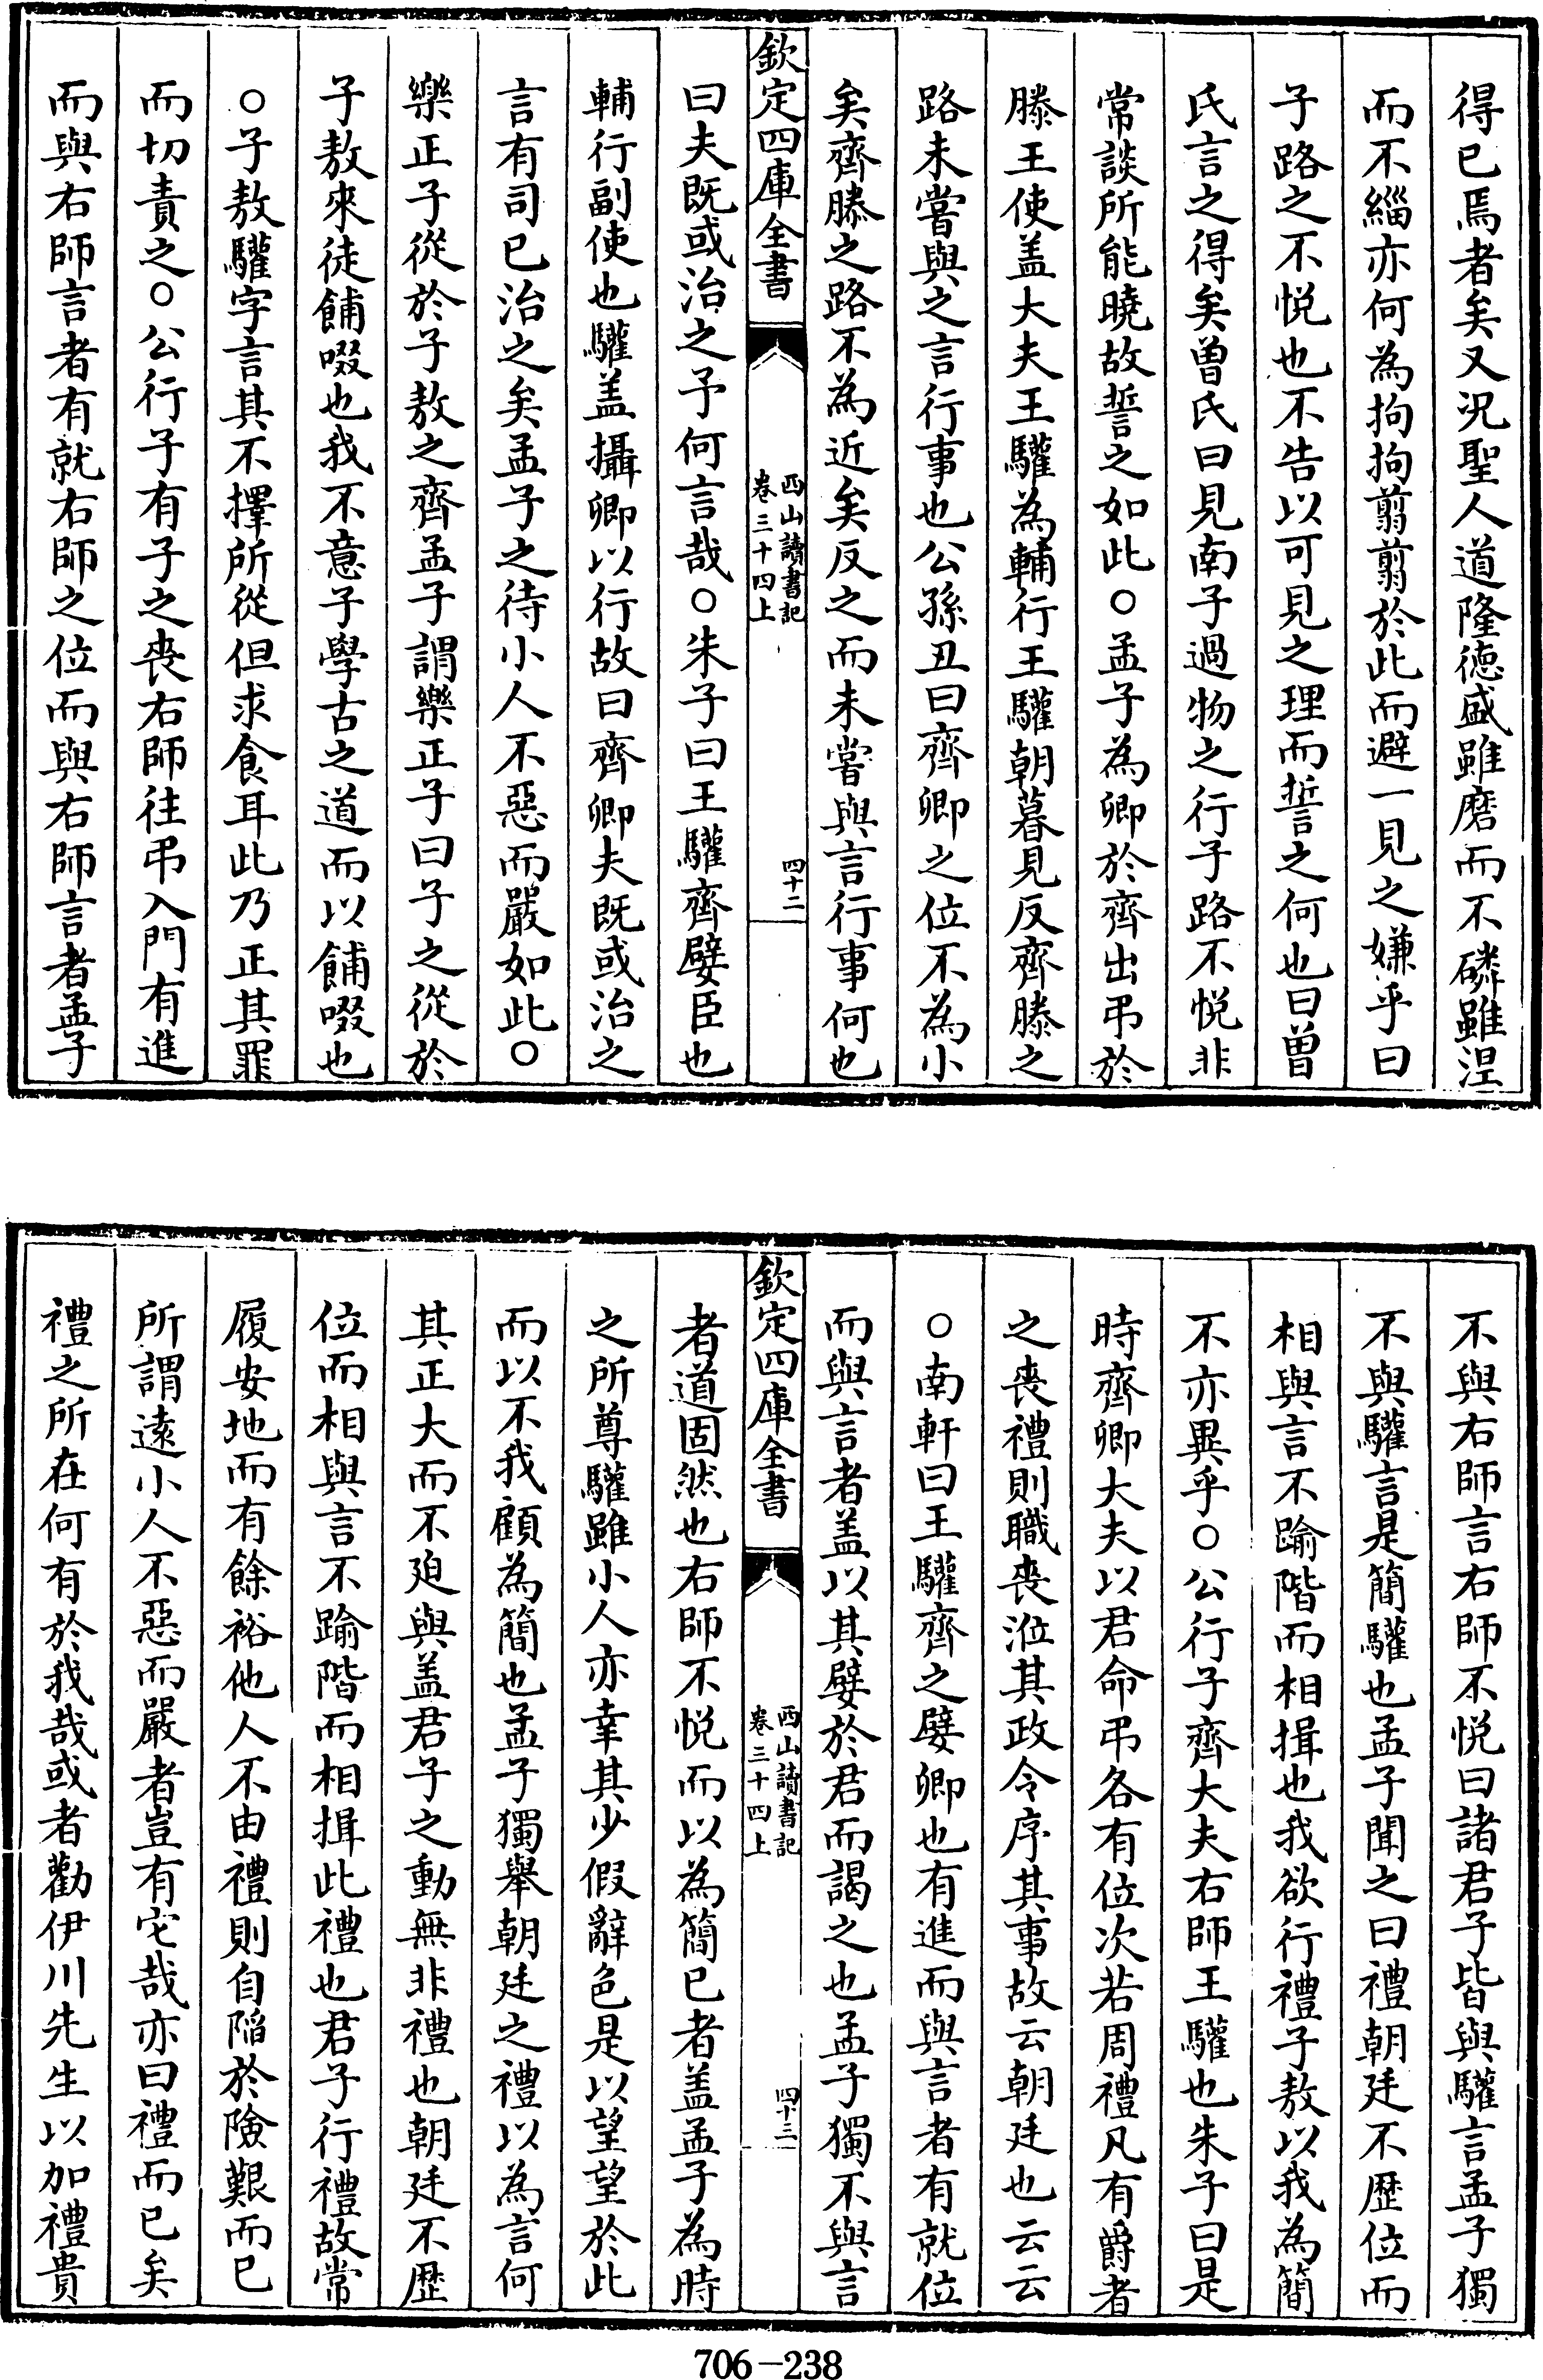 得已焉者矣又況聖人道隆徳盛雖磨而不磷雖涅
而不緇亦何為拘拘翦翦於此而避一見之嫌乎曰
子路之不悦也不告以可見之理而誓之何也曰曾
氏言之得矣曾氏曰見南子過物之行子路不悦非
常談所能曉故誓之如此○孟子為卿於齊出弔於
滕王使盖大夫王驩為輔行王驩朝暮見反齊滕之
路未嘗與之言行事也公孫丑曰齊卿之位不為小
矣齊滕之路不為近矣反之而未嘗與言行事何也
欽定四庫全書
西山讀書記
卷三十四上
四十二
曰夫既或治之予何言哉○朱子曰王驩齊嬖臣也
輔行副使也驩盖攝卿以行故曰齊卿夫既或治之
言有司已治之矣孟子之待小人不惡而嚴如此○
樂正子從於子敖之齊孟子謂樂正子曰子之從於
子敖來徒餔啜也我不意子學古之道而以餔啜也
○子敖驩字言其不擇所從但求食耳此乃正其罪
而切責之○公行子有子之喪右師往弔入門有進
而與右師言者有就右師之位而與右師言者孟子
不與右師言右師不悦曰諸君子皆與驩言孟子獨
不與驩言是簡驩也孟子聞之曰禮朝廷不歴位而
相與言不踰階而相揖也我欲行禮子敖以我為簡
不亦異乎○公行子齊大夫右師王驩也朱子曰是
時齊卿大夫以君命弔各有位次若周禮凡有爵者
之喪禮則職喪涖其政令序其事故云朝廷也云云
○南軒曰王驩齊之嬖卿也有進而與言者有就位
而與言者盖以其嬖於君而謁之也孟子獨不與言
欽定四庫全書
西山讀書記
卷三十四上
四十三
者道固然也右師不悦而以為簡已者盖孟子為時
之所尊驩雖小人亦幸其少假辭色是以望望於此
而以不我顧為簡也孟子獨舉朝廷之禮以為言何
其正大而不廹與盖君子之動無非禮也朝廷不歴
位而相與言不踰階而相揖此禮也君子行禮故常
履安地而有餘裕他人不由禮則自陷於險艱而已
所謂遠小人不惡而嚴者豈有它哉亦曰禮而已矣
禮之所在何有於我哉或者勸伊川先生以加禮貴
706-238